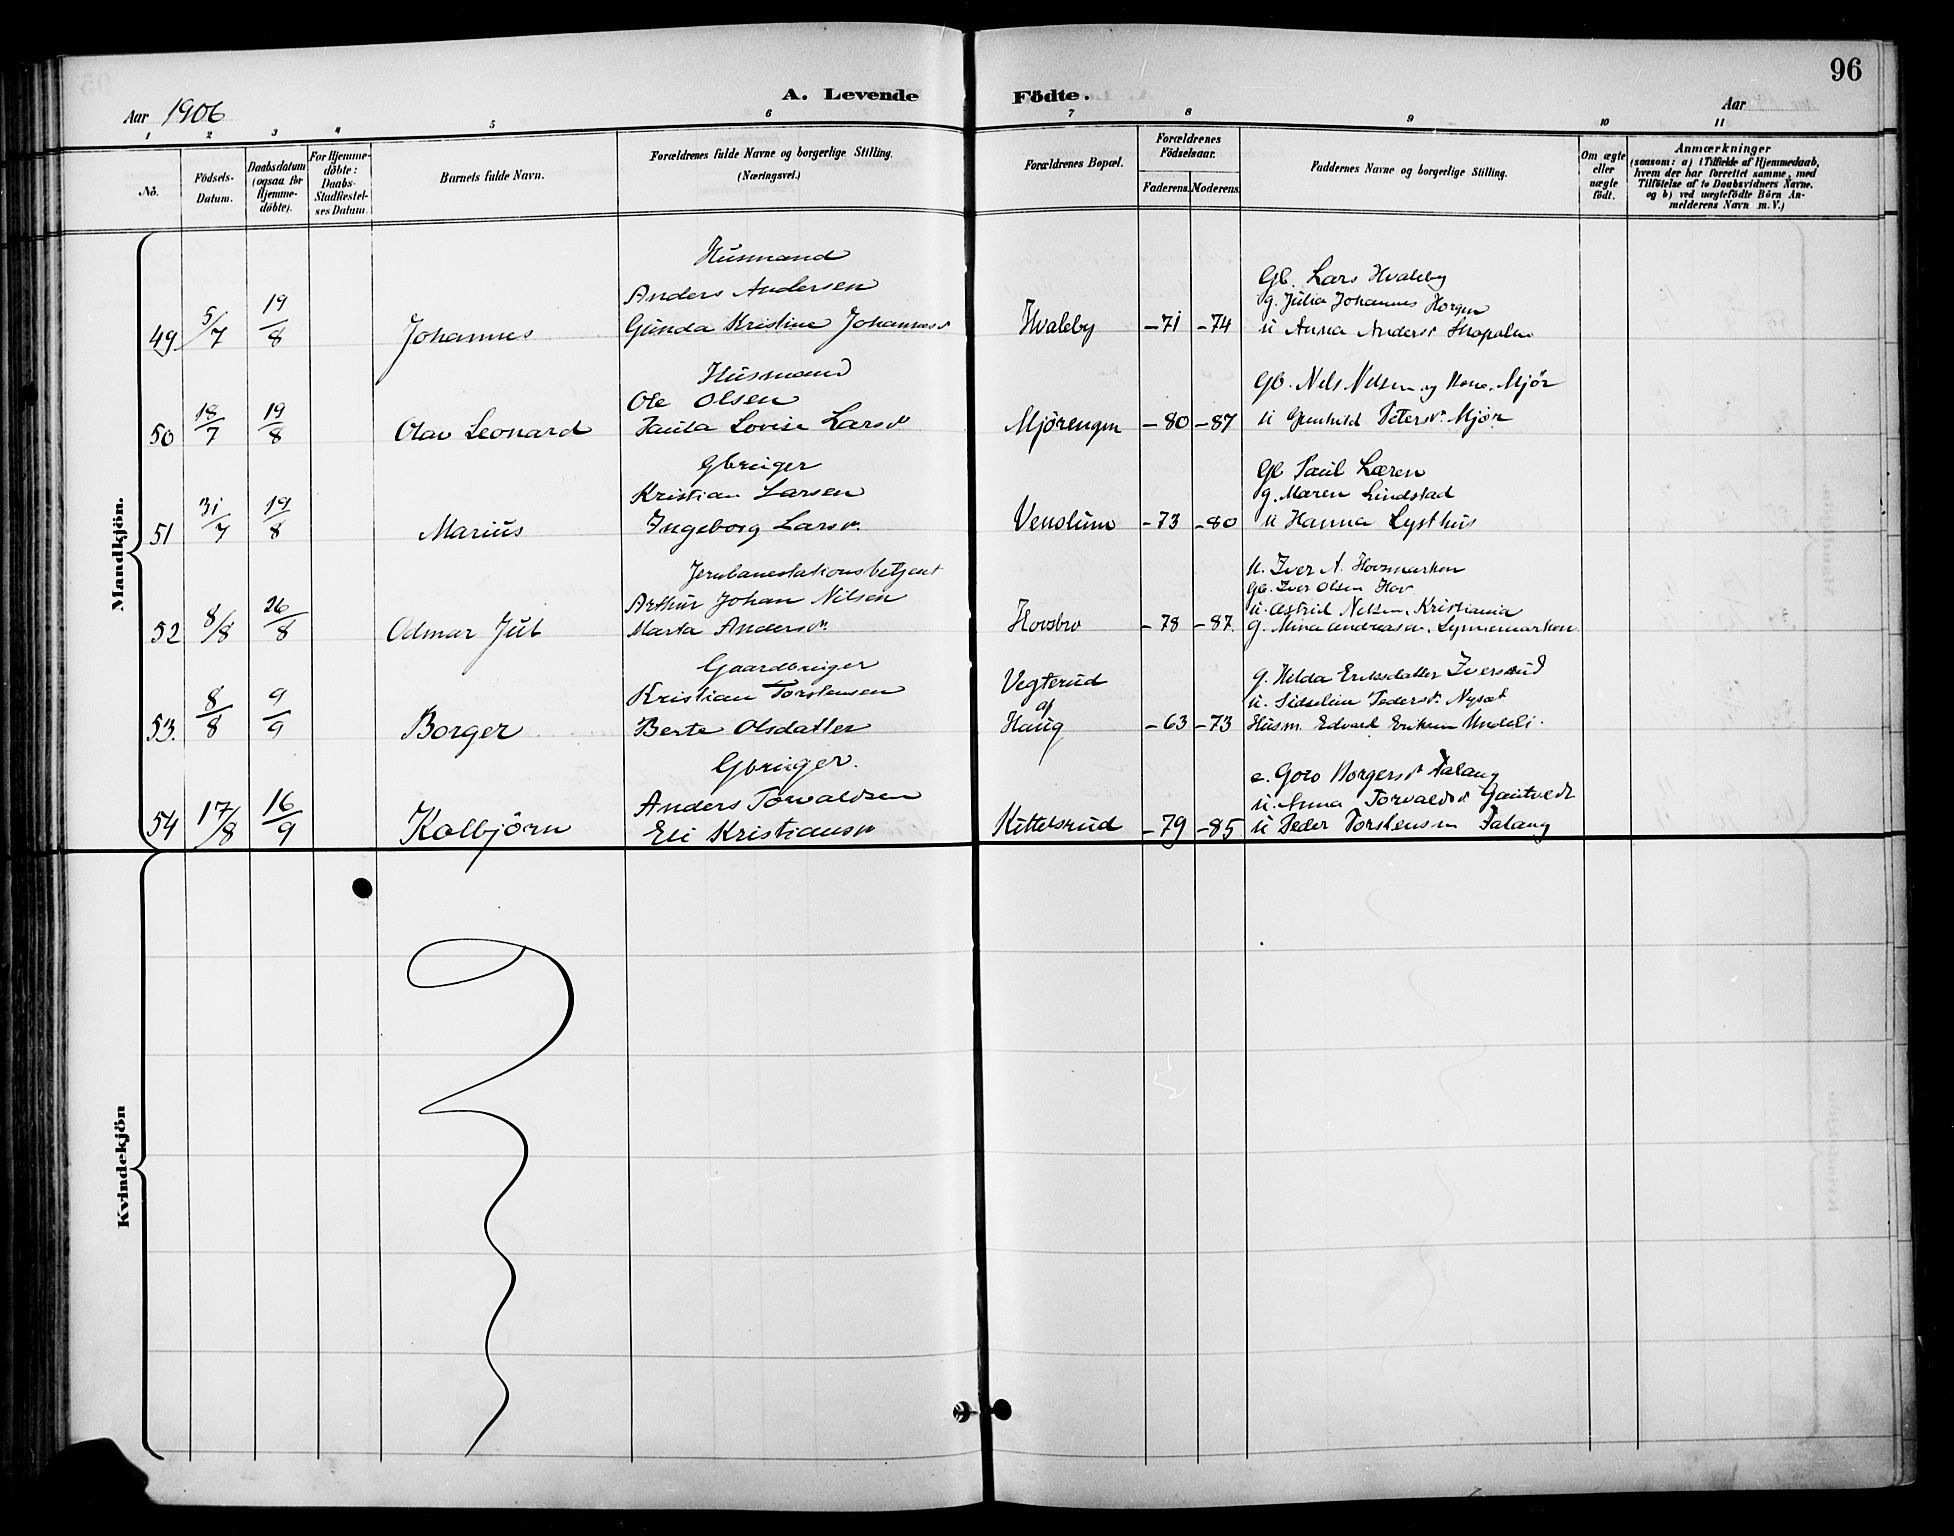 96
A. Levende Födte.
Aar 1906
Aar
1 2 3 4 5 6 7 8 9 10 11
No.
Födsels-Datum.
Daabsdatum (ogsaa for Hjemme-döbte).
For Hjemme-döbte: Daabs-Stadfæstel-ses Datum.
Barnets fulde Navn.
Forældrenes fulde Navne og borgerlige Stilling.
(Næringsvei.)
Forældrenes Bopæl.
Forældrenes Födselsaar.
Faderens. Moderens.
Faddernes Navne og borgerlige Stilling.
Om ægte eller uægte födt.
Anmærkninger
(saasom: a) i Tilfælde af Hjemmedaab,
hvem der har forrettet samme, med
Tilföielse af to Daabsvidners Navne.
og b) ved uægtefödte Börn An-
melderens Navn m. V.)
Mandkjön.
Husmand
Anders Andersen
Gunda Kristine Johannesd.
49 5/7 19/8 Johannes
Hvaleby -71 -74
Gb. Lars Hvaleby
g. Julia Johannes Horgen
u Anna Andersd
Husmand
Ole Olsen
Paula Lovise Larsd
50 18/7 19/8 Olav Leonard
Mjørengen -80 -87
Gb. Nels Nelsen og Kone, Mjør
u Gunhild Petersd. Mjør
Gbruger
Kristian Larsen
Ingeborg Larsd.
51 31/7 19/8 Marius
Venslum -73 -80
Gb Paul Læren
g. Maren Lindstad
u Hanna Lysthus
Jernbanestationsbetjent
Arthur Johan Nilsen
Marta Andersd.
52 8/8 26/8 Odmar Jul
Hovsbro -78 -87
u. Iver A. Hovsmarken
Gb. Iver Olsen Hov
u. Astrid Nelsen, Kristiania
g. Mina Andreasen, Lynnemarken
Gaardbruger
Kristian Torstensen
Berte Olsdatter
53. 8/8 9/9 Borger
Vegterud
af
Haug -63 -73
g. Helda Eriksdatter Iversrud
u. Sidseline Pedersd. Nyset
Husm. Edvard Eriksen Undeli.
Gbruger.
Anders Torvaldsen
Eli Kristiansd
54 17/8 16/9 Kolbjörn
Kittelsrud -79 -85
e. Goro Borgersd Falang
u. Anna Torvaldsd Gautvedt
u Peder Torstensen Falang
Kvindekjön